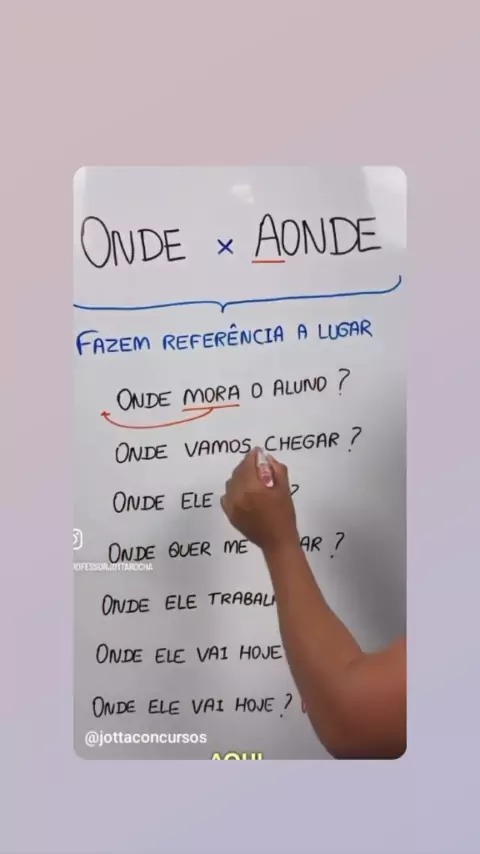 ONDE x AONDE
FAZEM REFERÊNCIA A LUGAR
ONDE MORA O ALUNO?
ONDE VAMOS CHEGAR?
ONDE ELE ?
ONDE QUER ME AR?
ONDE ELE
ONDE ELE VAI HOJE
ONDE ELE VAI HOJE?
@jottaconcursos
AQUI